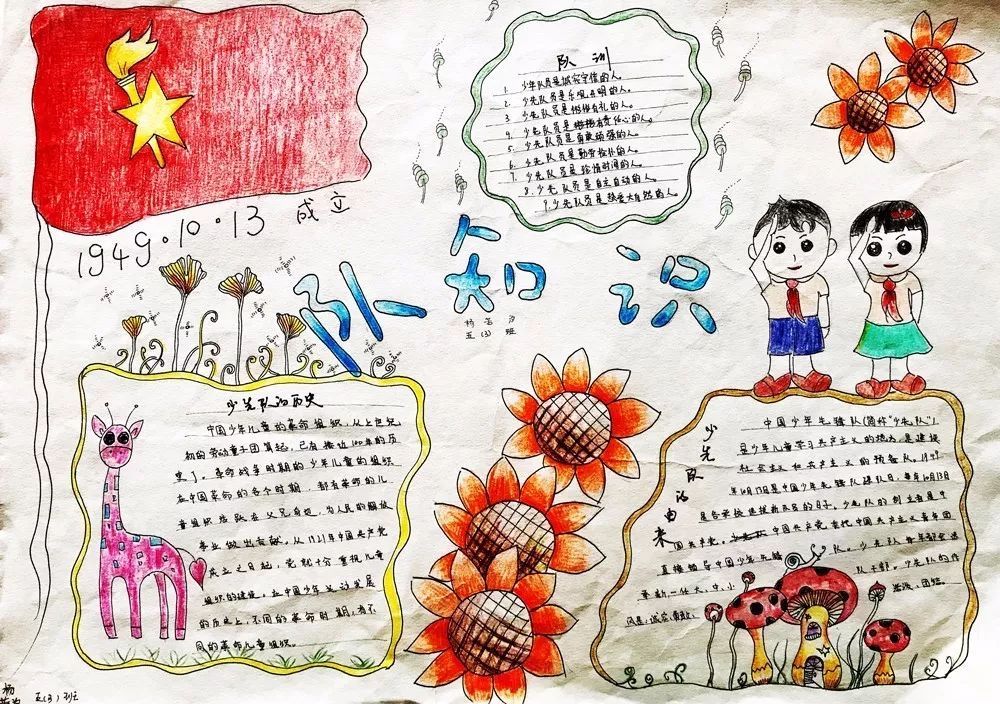 队训
1. 少年队员是诚实守信的人。
2. 少先队员是乐观开朗的人。
3. 少先队员是有礼的人。
4. 少先队员是有责任心的人。
5. 少先队员是勇敢顽强的人。
6. 少先队员是勤劳俭朴的人。
7. 少先队员是珍惜时间的人。
8. 少先队员是自立自动的人。
9. 少先队员是热爱大自然的人。
1949.10.13 成立
队知识
杨 汐
五(3)班
少先队的历史
中国少年儿童的革命组织，从上世纪
初的劳动童子团算起，已有接近100年的历
史了。革命战争时期的少年儿童的组织
在中国革命的各个时期，都有革命的儿
童组织活跃在父兄身边，为人民的解放
事业做出贡献。从1921年中国共产党
成立之日起，党就十分重视儿童
组织的建设。在中国少年运动发展
的历史上，不同的革命时期，有不
同的革命儿童组织。
少先队的由来
中国少年先锋队(简称"少先队")
是少年儿童学习共产主义的地方，是建设
社会主义和共产主义的预备队。1949
年10月13日是中国少年先锋队建队日，每年10月13日
是各学校迎接新队员的日子。少先队的创立者是中
国共产党。中国共产党委托中国共产主义青年团
直接领导中国少年先锋队。少先队每年都会选
举新一任大、中、小队干部。少先队的作
风是：诚实、勇敢、活泼、团结。
杨
五(3)班